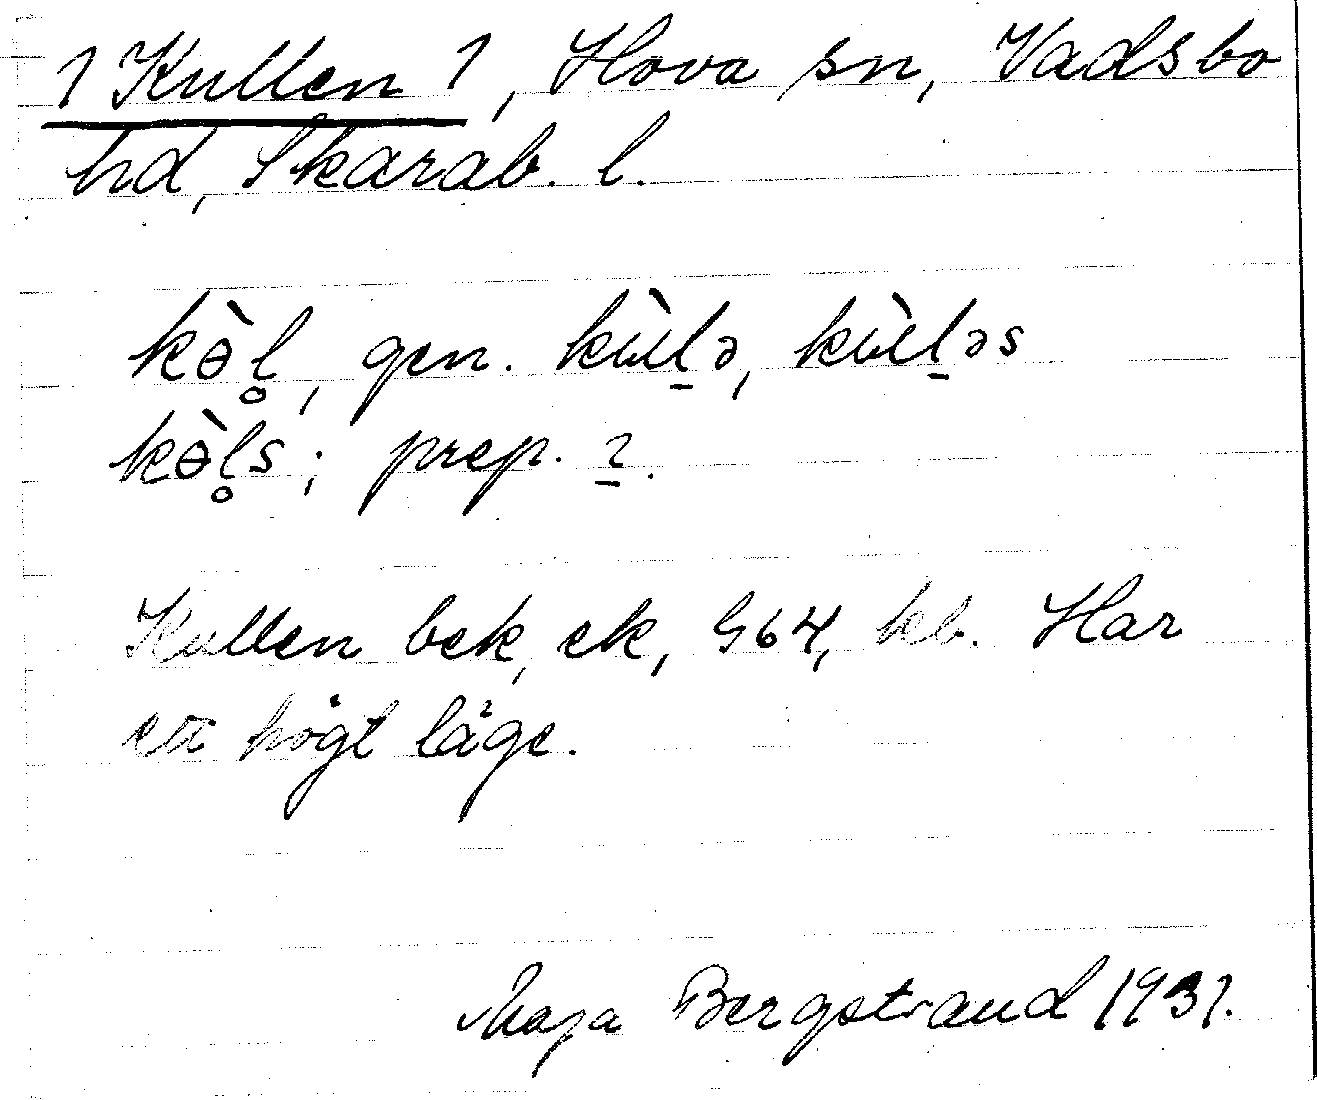 1 Kullen 1, Hova sn, Vadsbo
hd, Skarab. l.
kə̀l̥, gen. kùl̠ə, kùl̠əs
kə̀l̥s; prep. ɩ̠.
Kullen bek, ek, G64, kb. Har
ett högt läge.
Maja Bergstrand 1931.